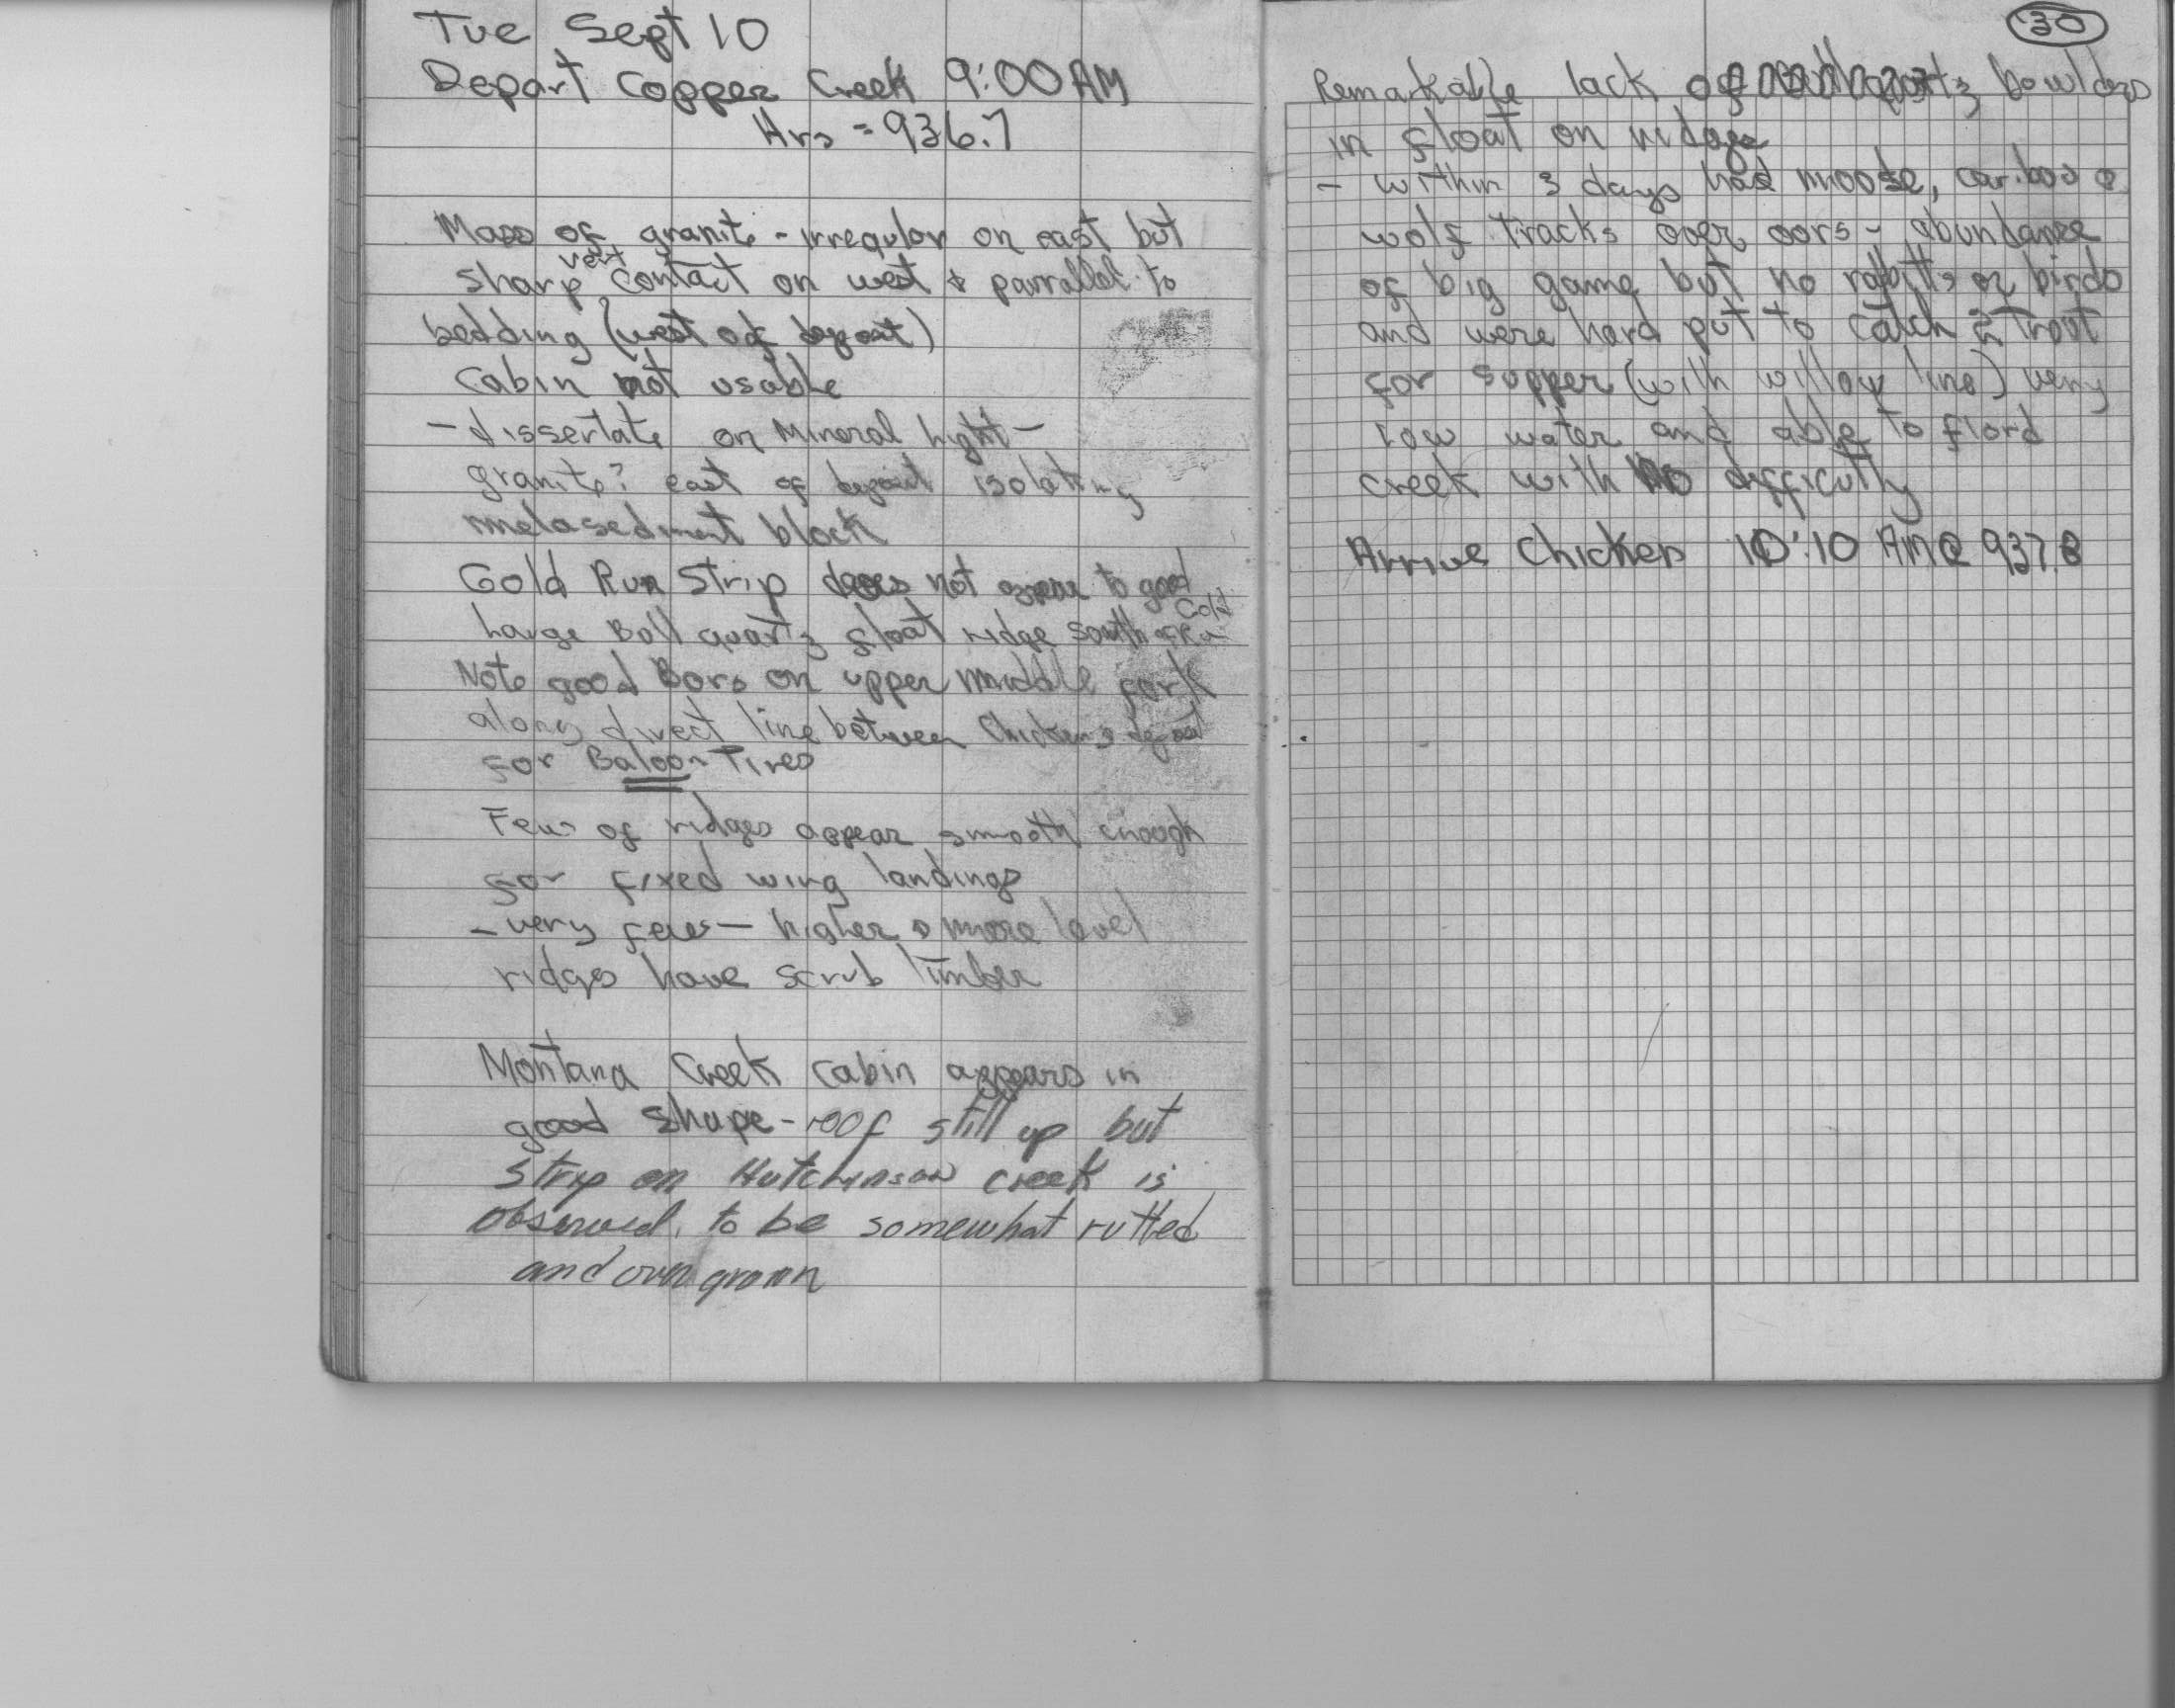 Tue Sept 10
Depart Copper Creek 9:00 AM
Hrs = 936.7
Mass of granite - irregular on east but
vert
sharp contact on west & parrallel to
bedding (west of deposit)
cabin not usable
- dissertate on Mineral light -
granite? east of deposit isolating
metasediment block
Gold Run Strip does not appear to good
Large Bull quartz float ridge south of Gold Run
Note good Bars on upper middle fork
along direct line between Chicken & deposit
for Baloon Tires
Few of ridges appear smooth enough
for fixed wing landings
- very few - higher & more level
ridges have scrub timber
Montana Creek cabin appears in
good shape - roof still up but
strip on Hutchinson creek is
observed to be somewhat rutted
and overgrown
30
Remarkable lack of quartz bowlders
in float on ridge
- within 3 days had moose, caribou &
wolf tracks over ours - abundance
of big game but no rabbitts or birds
and were hard put to catch 2 trout
for supper (with willow line) very
low water and able to flord
creek with no difficulty
Arrive Chicken 10:10 AM @ 937.8